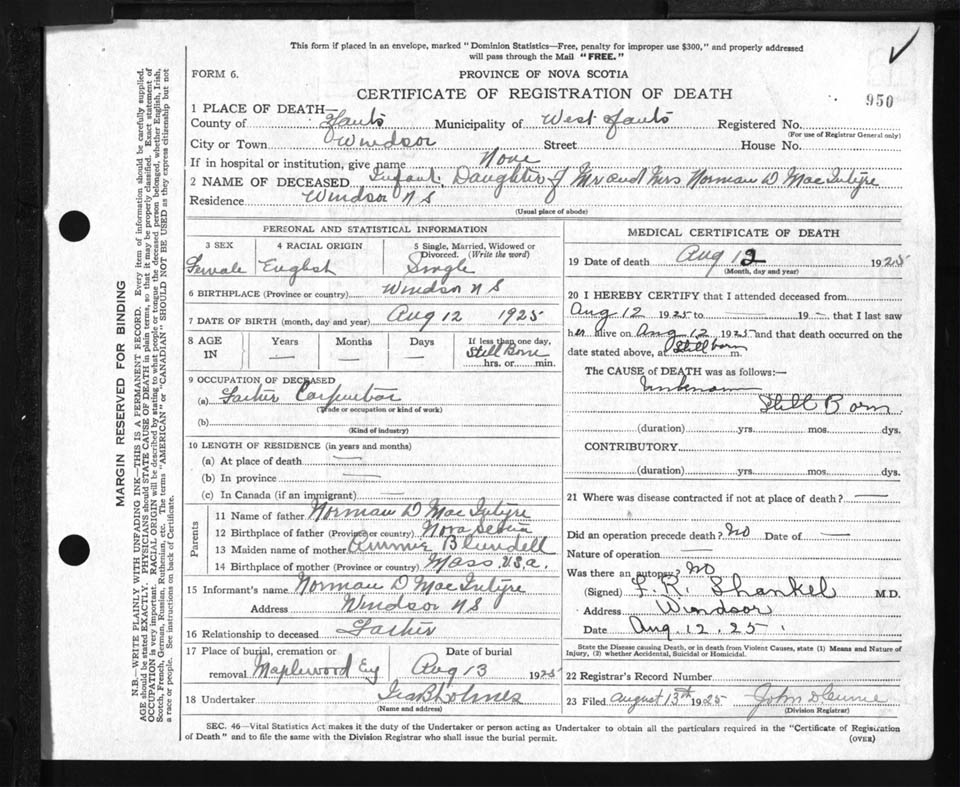 This form if placed in an envelope, marked "Dominion Statistics—Free, penalty for improper use $300," and properly addressed
will pass through the Mail "FREE."
FORM 6.
PROVINCE OF NOVA SCOTIA
950
CERTIFICATE OF REGISTRATION OF DEATH
1 PLACE OF DEATH—
County of Hants Municipality of West Hants Registered No.
(For use of Registrar General only)
City or Town Windsor Street House No.
If in hospital or institution, give name None
2 NAME OF DECEASED Infant Daughter of Mr and Mrs Norman D MacIntyre
Residence Windsor N S
(Usual place of abode)
PERSONAL AND STATISTICAL INFORMATION
3 SEX 4 RACIAL ORIGIN 5 Single, Married, Widowed or Divorced. (Write the word)
Female English Single
6 BIRTHPLACE (Province or country) Windsor N S
7 DATE OF BIRTH (month, day and year) Aug 12 1925
8 AGE IN Years Months Days If less than one day, Still Born hrs. or min.
9 OCCUPATION OF DECEASED
(a) Father Carpenter
(Trade or occupation or kind of work)
(b)
(Kind of industry)
10 LENGTH OF RESIDENCE (in years and months)
(a) At place of death —
(b) In province —
(c) In Canada (if an immigrant) —
Parents
11 Name of father Norman D MacIntyre
12 Birthplace of father (Province or country) Nova Scotia
13 Maiden name of mother Blundell
14 Birthplace of mother (Province or country) Mass. U.S.A.
15 Informant's name Norman D MacIntyre
Address Windsor N S
16 Relationship to deceased Father
17 Place of burial, cremation or removal Maplewood Date of burial Aug 13 1925
18 Undertaker
(Name and address)
MEDICAL CERTIFICATE OF DEATH
19 Date of death Aug 12 1925
(Month, day and year)
20 I HEREBY CERTIFY that I attended deceased from
Aug 12 1925 to — 19 — that I last saw
her alive on Aug 12 1925 and that death occurred on the
date stated above, at Stillborn m.
The CAUSE of DEATH was as follows:—
Unknown
Still Born
(duration) yrs. mos. dys.
CONTRIBUTORY
(duration) yrs. mos. dys.
21 Where was disease contracted if not at place of death? —
Did an operation precede death? No Date of —
Nature of operation —
Was there an autopsy? No
(Signed) F. R. Shankel M.D.
Address Windsor
Date Aug. 12. 25.
State the Disease causing Death, or in Death from Violent Causes, state (1) Means and Nature of
Injury, (2) whether Accidental, Suicidal or Homicidal.
22 Registrar's Record Number
23 Filed August 13th 1925 John
(Division Registrar)
SEC. 46—Vital Statistics Act makes it the duty of the Undertaker or person acting as Undertaker to obtain all the particulars required in the "Certificate of Registration
of Death" and to file the same with the Division Registrar who shall issue the burial permit.
(OVER)
MARGIN RESERVED FOR BINDING
N.B.—WRITE PLAINLY WITH UNFADING INK—THIS IS A PERMANENT RECORD. Every item of information should be carefully supplied.
AGE should be stated EXACTLY. PHYSICIANS should STATE CAUSE OF DEATH in plain terms, so that it may be properly classified. Exact statement of
OCCUPATION is very important. RACIAL ORIGIN will be described by stating to what people or tongue the deceased person belonged, whether English, Irish,
Scotch, French, German, Russian, Ruthenian, etc. The terms "AMERICAN" or "CANADIAN" SHOULD NOT BE USED as they express citizenship but not
a race or people. See instructions on back of Certificate.